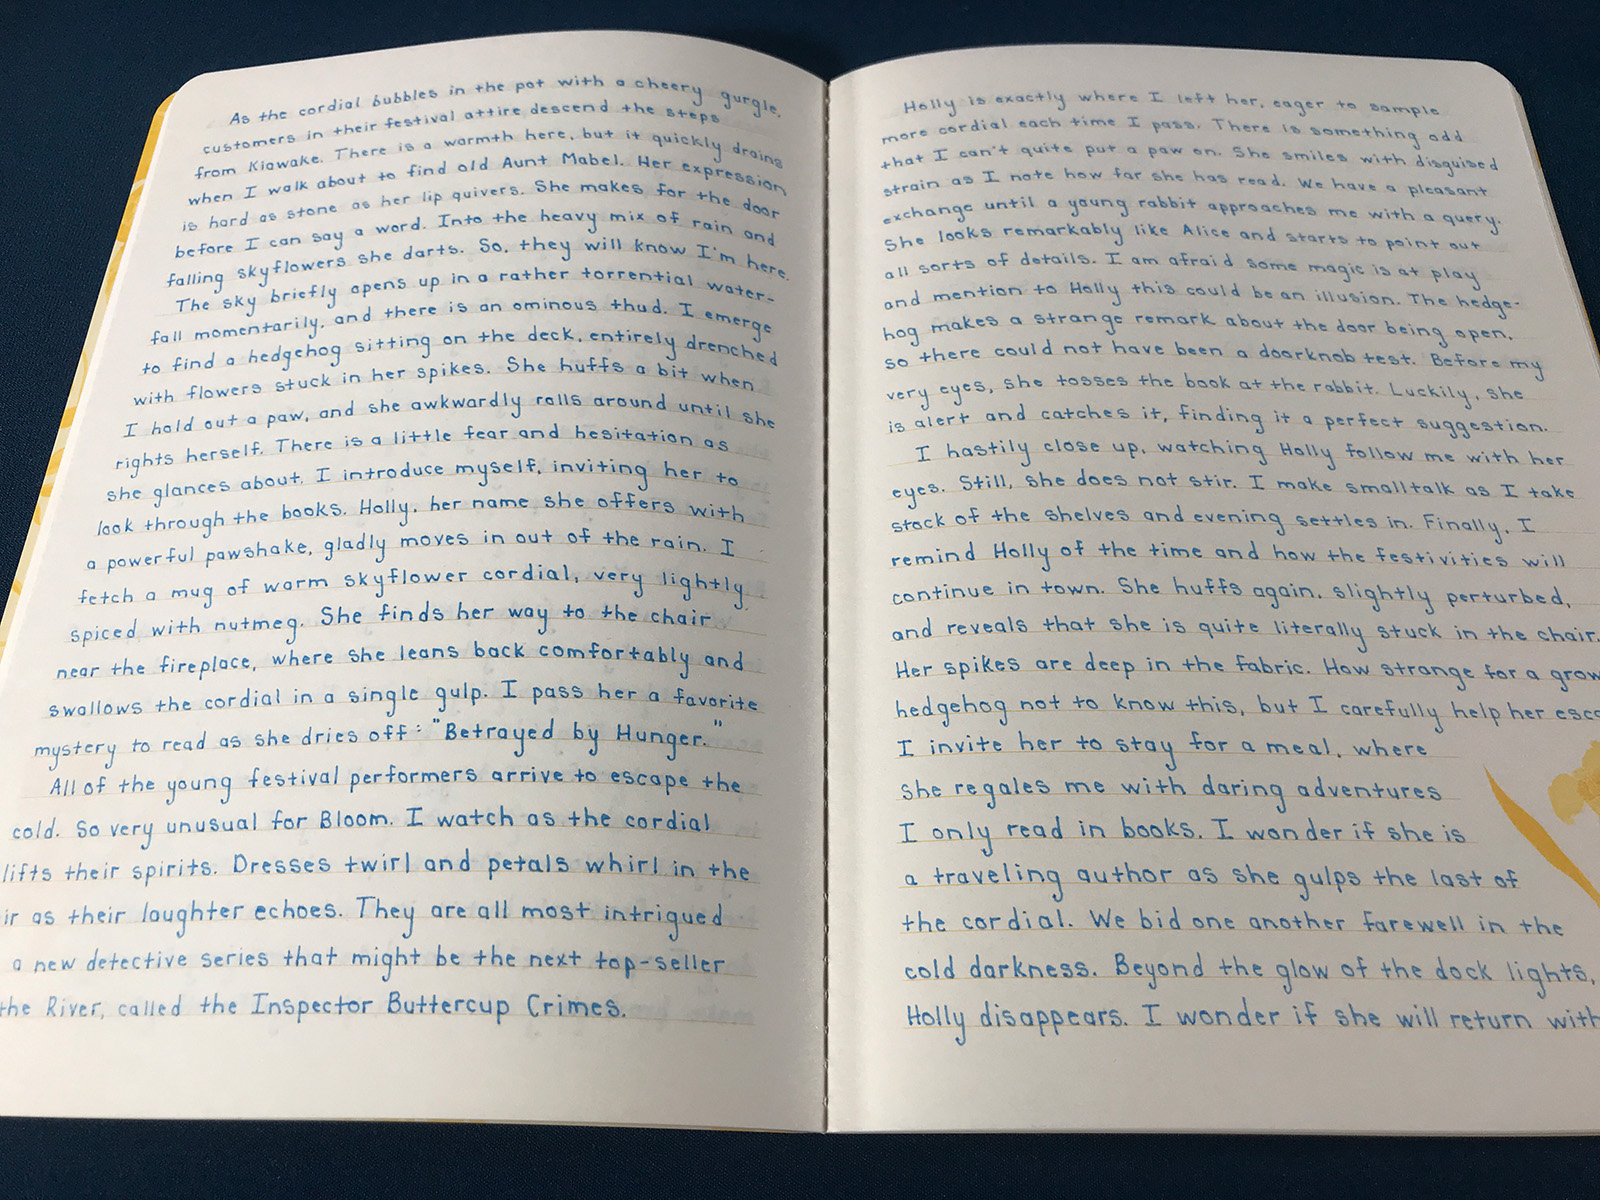 As the cordial bubbles in the pot with a cheery gurgle,
customers in their festival attire descend the steps
from Kiawake. There is a warmth here, but it quickly drains
when I walk about to find old Aunt Mabel. Her expression
is hard as stone as her lip quivers. She makes for the door
before I can say a word. Into the heavy mix of rain and
falling skyflowers she darts. So, they will know I'm here.
The sky briefly opens up in a rather torrential water-
fall momentarily, and there is an ominous thud. I emerge
to find a hedgehog sitting on the deck, entirely drenched
with flowers stuck in her spikes. She huffs a bit when
I hold out a paw, and she awkwardly rolls around until she
rights herself. There is a little fear and hesitation as
she glances about. I introduce myself, inviting her to
look through the books. Holly, her name she offers with
a powerful pawshake, gladly moves in out of the rain. I
fetch a mug of warm skyflower cordial, very lightly
spiced with nutmeg. She finds her way to the chair
near the fireplace, where she leans back comfortably and
swallows the cordial in a single gulp. I pass her a favorite
mystery to read as she dries off: "Betrayed by Hunger."
All of the young festival performers arrive to escape the
cold. So very unusual for Bloom. I watch as the cordial
lifts their spirits. Dresses twirl and petals whirl in the
ir as their laughter echoes. They are all most intrigued
a new detective series that might be the next top-seller
the River, called the Inspector Buttercup Crimes.
Holly is exactly where I left her, eager to sample
more cordial each time I pass. There is something odd
that I can't quite put a paw on. She smiles with disguised
strain as I note how far she has read. We have a pleasant
exchange until a young rabbit approaches me with a query.
She looks remarkably like Alice and starts to point out
all sorts of details. I am afraid some magic is at play
and mention to Holly this could be an illusion. The hedge-
hog makes a strange remark about the door being open,
so there could not have been a doorknob test. Before my
very eyes, she tosses the book at the rabbit. Luckily, she
is alert and catches it, finding it a perfect suggestion.
I hastily close up, watching Holly follow me with her
eyes. Still, she does not stir. I make smalltalk as I take
stock of the shelves and evening settles in. Finally, I
remind Holly of the time and how the festivities will
continue in town. She huffs again, slightly perturbed,
and reveals that she is quite literally stuck in the chair.
Her spikes are deep in the fabric. How strange for a grow
hedgehog not to know this, but I carefully help her esca
I invite her to stay for a meal, where
she regales me with daring adventures
I only read in books. I wonder if she is
a traveling author as she gulps the last of
the cordial. We bid one another farewell in the
cold darkness. Beyond the glow of the dock lights,
Holly disappears. I wonder if she will return with